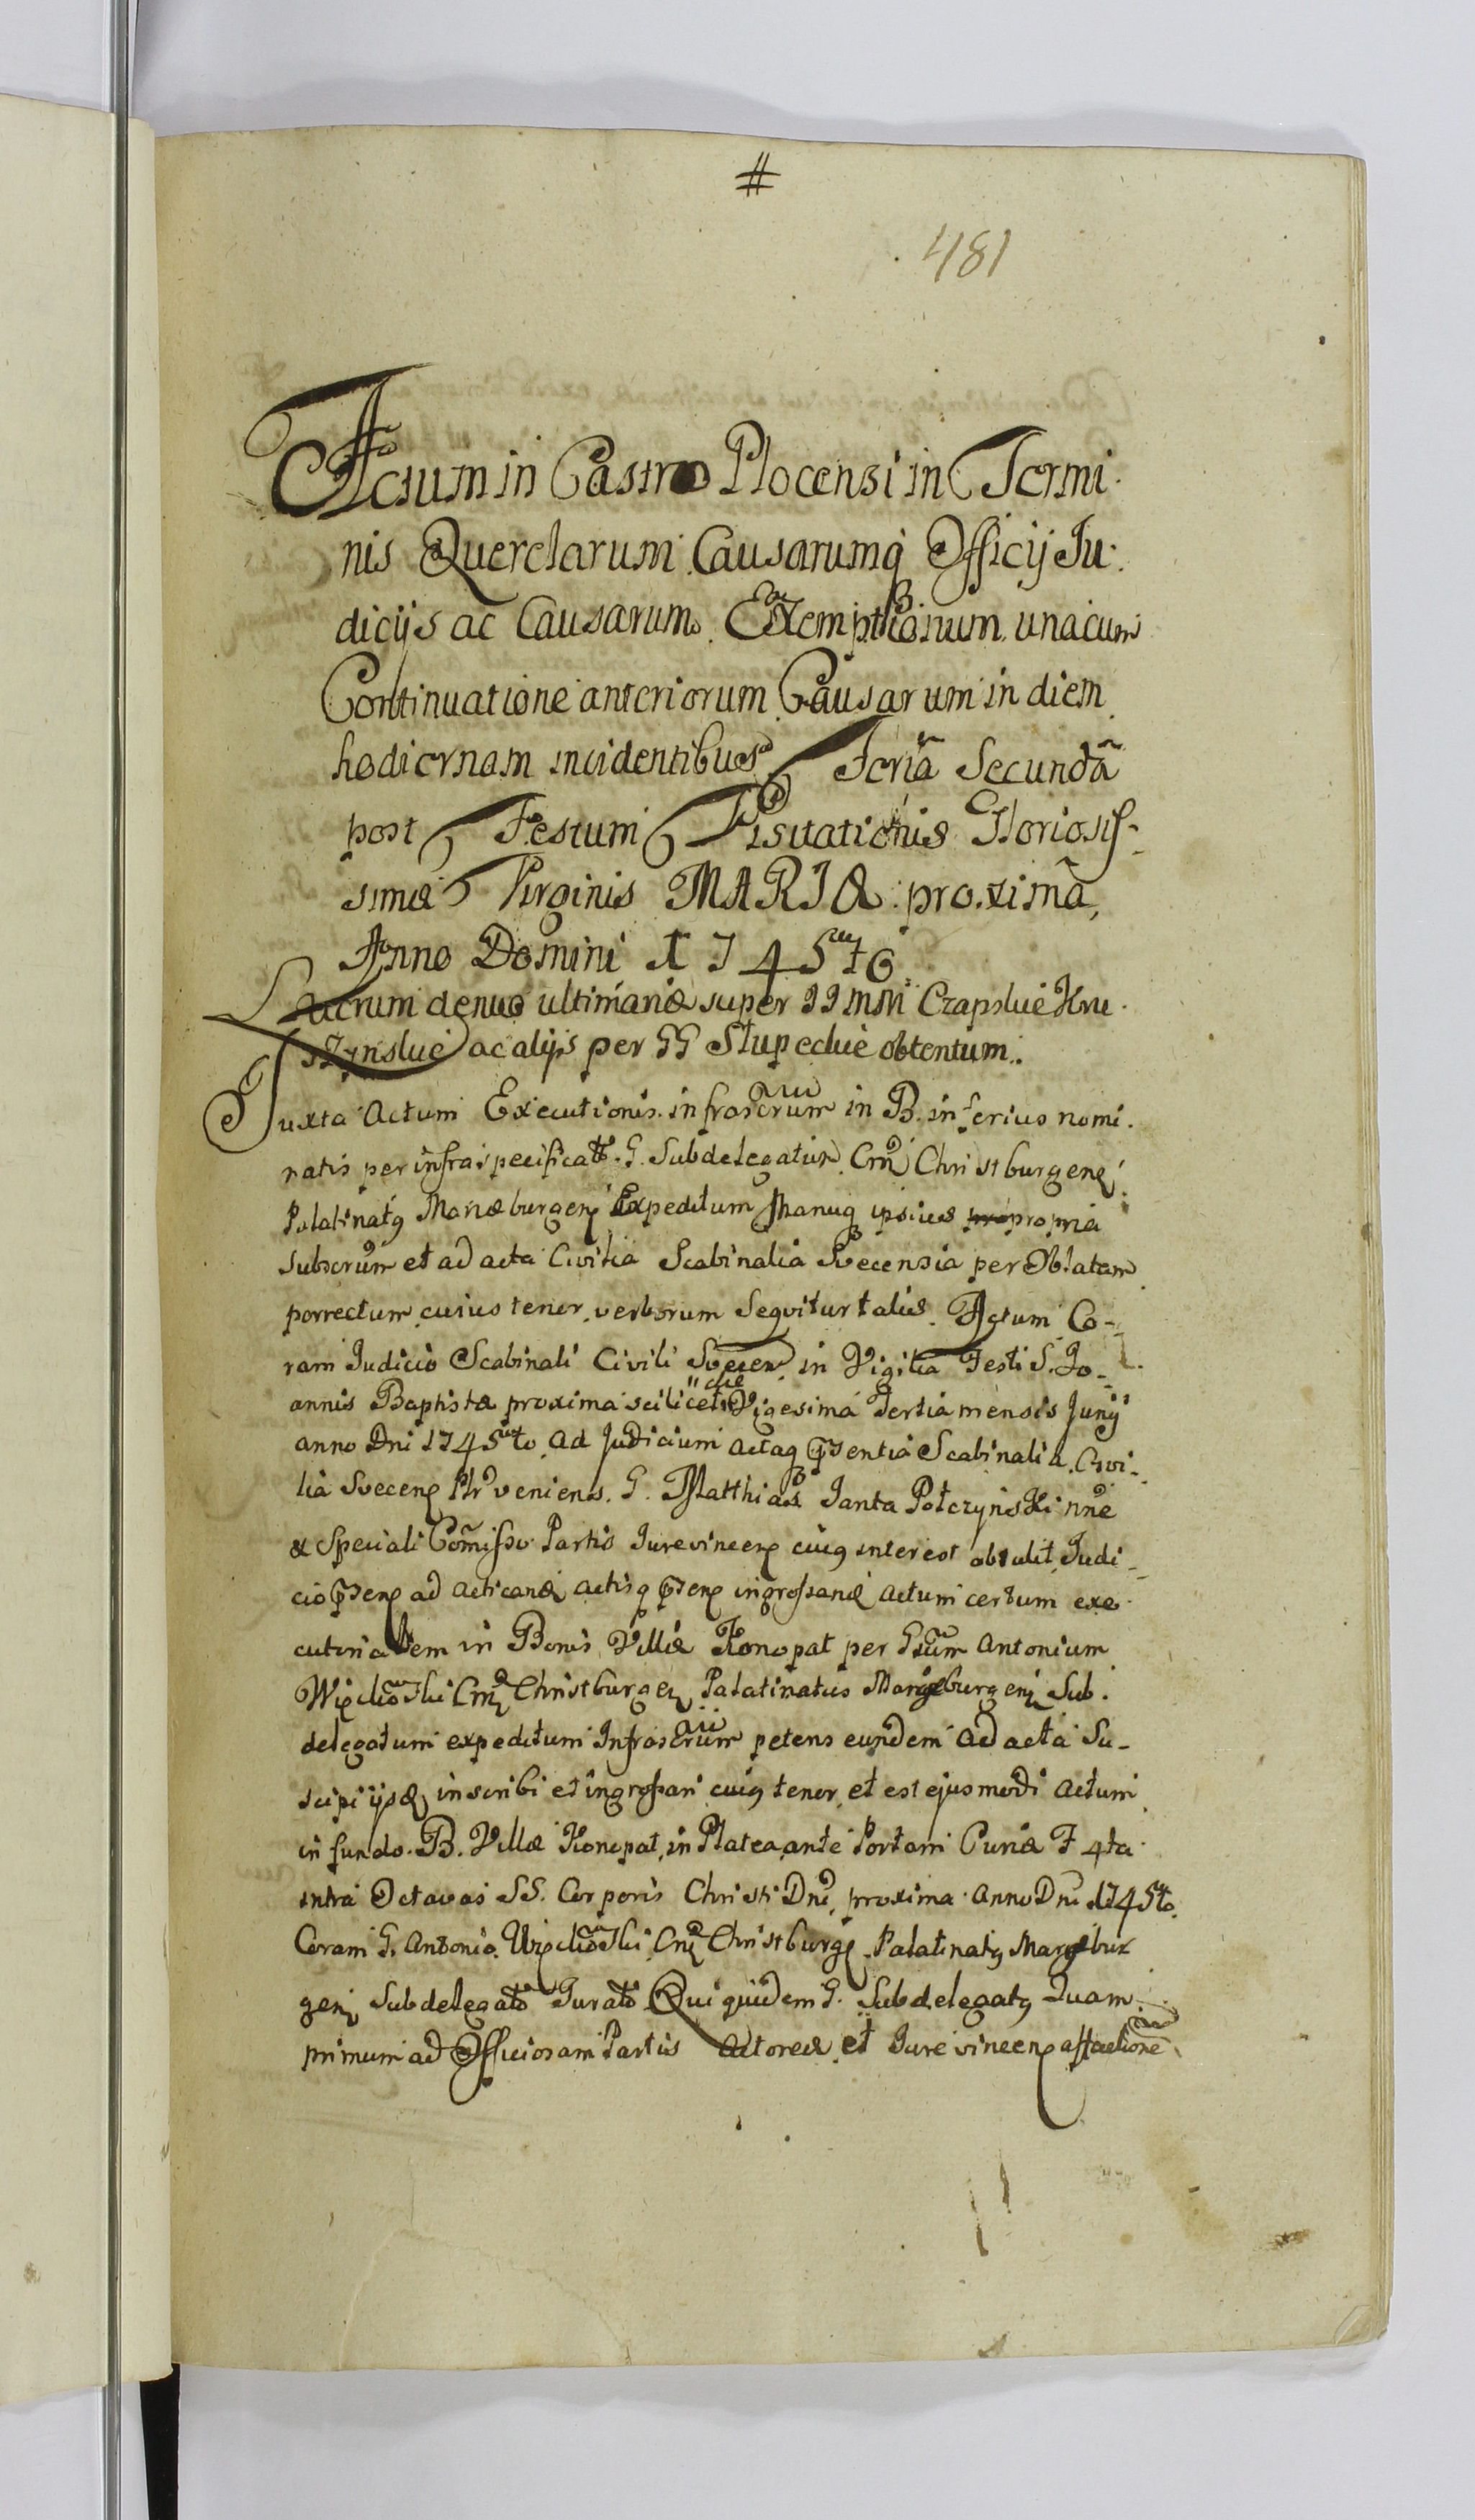 #
481
Actum in Castro Plocensi in Termi.
nis Querelarum Causarumq Officij Iu.
dicijs ac Causarum Exemptionum unacum
Continuatione anteriorum Causarum in diem
hodiernam incidentibus Feria Secunda
post Festum Visitationis Gloriosis-
simæ Virginis MARIÆ proxima,
Anno Domini 1745to
Lucrum denuo ultimariæ super IImM Czapskie Kru.
szynskie ac alijs per GG Słupeckie obtentum.
Juxta Actum Executionis infrascrum in B. inferius nomi.
natis per infraspecificatt. G. Subdelegatum Crm Christburgen
Palatinatq Mariæburgen Expeditum Manuq ipsius pro propria
subscrum et ad acta Civilia Scabinalia Svecensia per Oblatam
porrectum cuius tenor verborum Sequitur talis. Actum Co-
ram Iudicio Scabinali Civili Svecen in Vigilia Festi S. Jo-
annis Baptistæ proxima scilicet die Vigesima Tertia mensis Junij
anno Dni 1745to Ad Judicium actaq psentia Scabinalia Civi-
lia Svecen Plr veniens. G. Matthias Janta Połczynski nne
& Speciali Comisso Partis Jurevincen cuiq interest obtulit Judi-
cio psen ad acticand actisq psen ingrossand Actum certum exe
cutionalem in Bonis Villæ Konopat per Gsum Antonium
Wipclewski Crm Christburgen Palatinatus Mariæburgen Sub.
delegatum expeditum Infrascrum petens eundem ad acta Su-
scipi ijsq inscribi et ingrossari cuiq tenor et est ejusmodi Actum
in fundo B. Villæ Konopat in Platea ante Portam Curiæ F 4ta
intra Octavas SS. Corporis Christi Dni proxima Anno Dni 1745to
Coram G. Antonio Wipclewski Crm Christburgen Palatinatq Mariæbur
gen Subdelegato Jurato Qui quidem G. Subdelegatq Quam
primum ad Officiosam Partis Actoreæ et Jurevincen affectatione